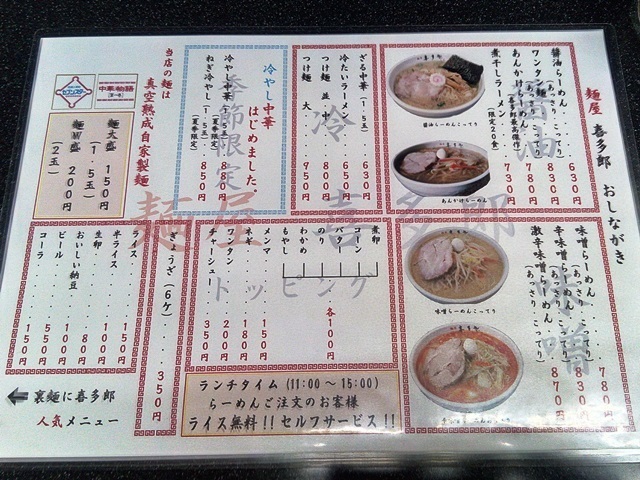 麺屋 喜多郎 おしながき
醤油
醤油らーめん
(あっさり こってり)
630円
ワンタン麺
(あっさり こってり)
830円
あんかけらーめん
(喜多郎最高傑作)
730円
煮干しラーメン
(限定20食)
780円
醤油らーめんこってり
あんかけらーめん
味噌
味噌らーめん
(あっさり こってり)
780円
辛味噌らーめん
(あっさり こってり)
830円
激辛味噌らーめん
(あっさり こってり)
870円
味噌らーめんこってり
冷
ざる中華(1.5玉) 630円
冷たいラーメン 650円
つけ麺 並 中 800円
つけ麺 大 950円
冷やし中華
はじめました
季節限定
冷やし中華
(夏季限定)
ねぎ冷やし(1.5玉) 850円
(夏季限定)
当店の麺は
真空熟成自家製麺
中華物語
麺大盛 150円
(1.5玉)
麺W盛 200円
(2玉)
麺屋 喜多郎
トッピング
煮卵
コーン
バター
のり
わかめ
もやし
各100円
メンマ 150円
ネギ 180円
ワンタン 200円
チャーシュー 350円
ぎょうざ(6ケ) 350円
ライス 150円
半ライス 100円
生卵 50円
おいしい納豆 100円
ビール 550円
コーラ 150円
ランチタイム(11:00～15:00)
らーめんご注文のお客様
ライス無料!!セルフサービス!!
裏麺に喜多郎
人気メニュー